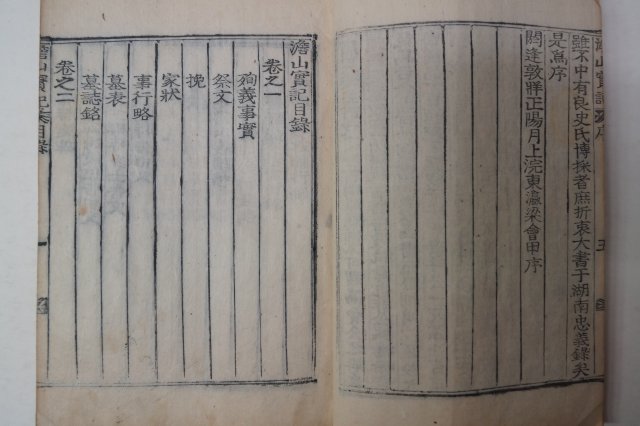 澹山實記序
五
雖不中有良史氏博採者庶折衷大書于湖南忠義錄矣
是爲序
閼逢敦牂正陽月上浣東瀛梁會甲序
澹山實記目錄
卷之一
殉義事實
祭文
挽
家狀
事行略
墓表
墓誌銘
卷之二
澹山實記目錄
一